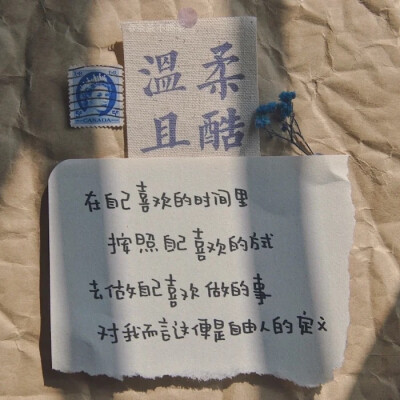 溫柔
且酷
CANADA
在自己喜欢的时间里
按照自己喜欢的方式
去做自己喜欢做的事
对我而言这便是自由人的定义